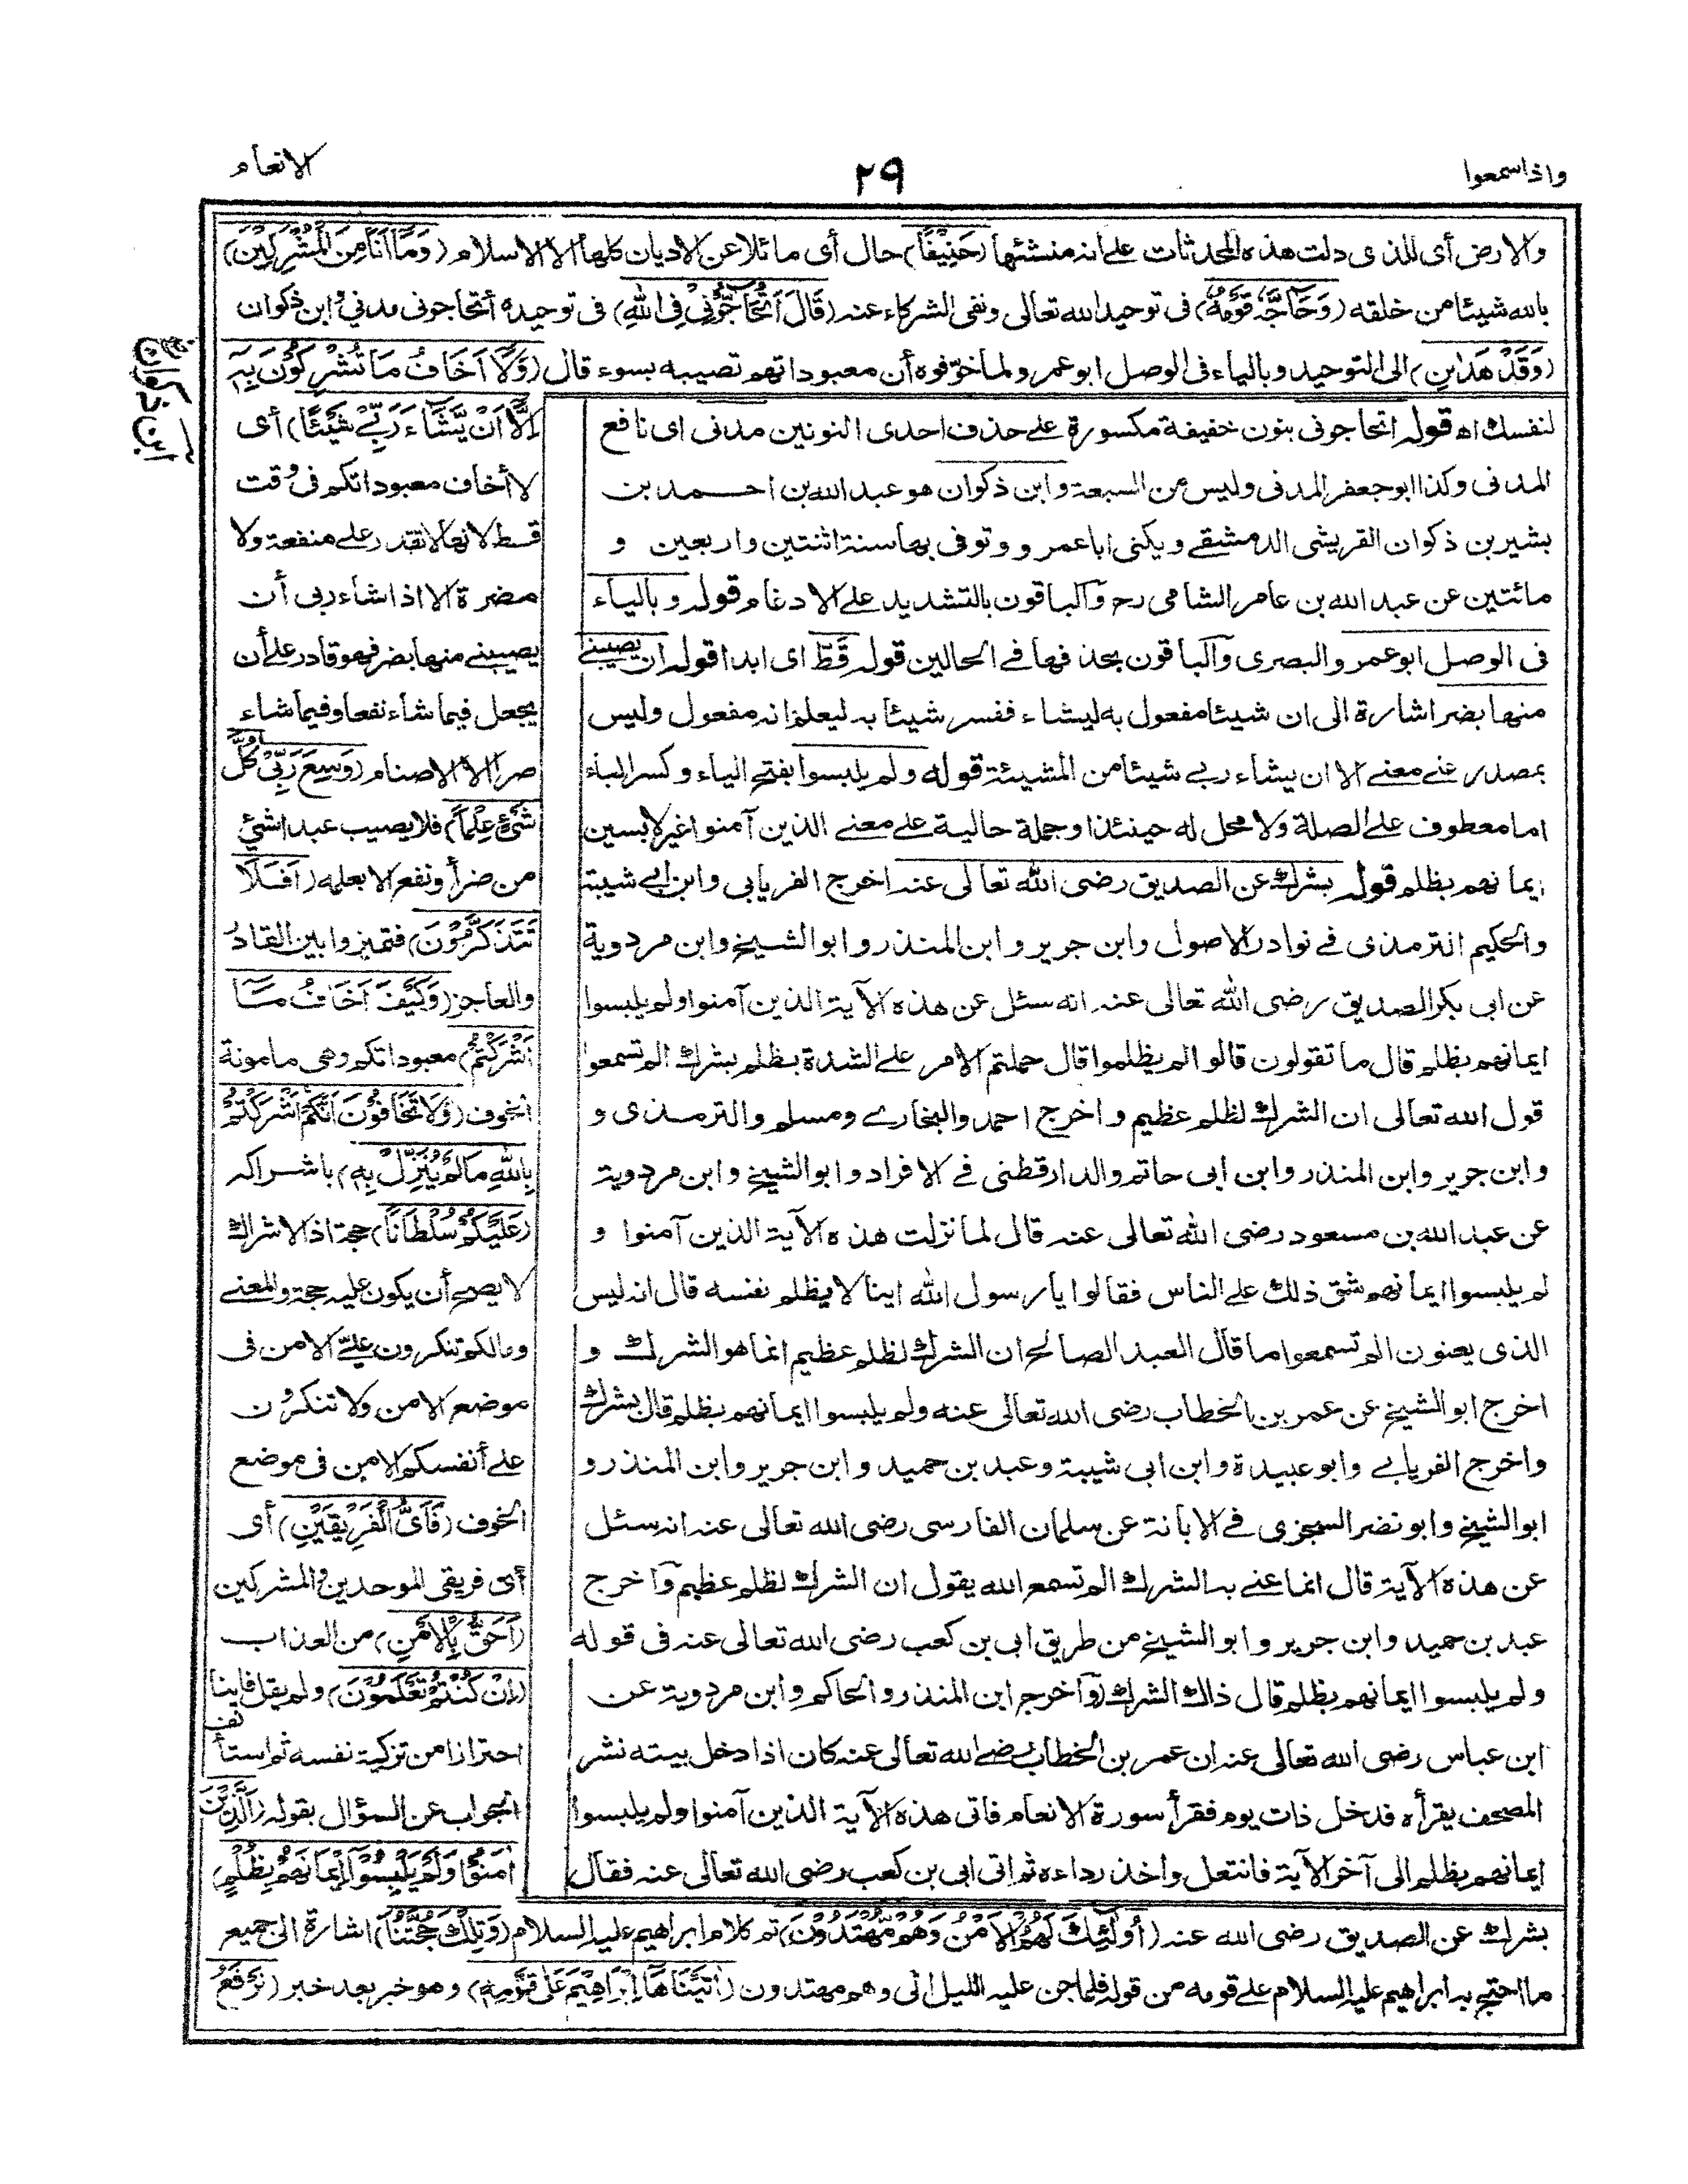 واذاسمعوا
٢٩
الانعام
والارض أى للذى دلت هذه المحدثات على أنه منشئها (حَنِيْفًا) حال أى مائلا عن الاديان كلها الا الاسلام (وَمَا أَنَا مِنَ الْمُشْرِكِيْنَ)
بالله شيئا من خلقه (وَحَاجَّهٗ قَوْمُهٗ) فى توحيد الله تعالى ونفى الشركاء عنه (قَالَ أَتُحَاجُّوْنِّيْ فِى اللّٰهِ) فى توحيده أتحاجونى مدنى وابن ذكوان
(وَقَدْ هَدٰىنِ) الى التوحيد وبالياء فى الوصل ابو عمرو ولما خوّفوه أن معبوداتهم تصيبه بسوء قال (وَلَا اَخَافُ مَا تُشْرِكُوْنَ بِهٖ
ابن ذكوان
اِلَّا اَنْ يَّشَاءَ رَبِّيْ شَيْئًا) أى
لا أخاف معبوداتكم فى وقت
قط لانها لا تقدر على منفعة ولا
مضرة الا اذا شاء ربى أن
يصيبنى منها بضر فهو قادر على أن
يجعل فيما شاء نفعا وفيما شاء
ضرا الا الاصنام (وَسِعَ رَبِّيْ كُلَّ
شَيْءٍ عِلْمًا) فلا يصيب عبدا شئ
من ضر أو نفع الا بعلمه (اَفَلَا
تَتَذَكَّرُوْنَ) فتميزوا بين القادر
والعاجز (وَكَيْفَ اَخَافُ مَا
اَشْرَكْتُمْ) معبوداتكم وهى مامونة
الخوف (وَلَا تَخَافُوْنَ اَنَّكُمْ اَشْرَكْتُمْ
بِاللّٰهِ مَا لَمْ يُنَزِّلْ بِهٖ) باشراكه
(عَلَيْكُمْ سُلْطَانًا) حجة اذ الاشراك
لا يصح أن يكون عليه حجة والمعنى
ومالكم تنكرون علىّ الامن فى
موضع الامن ولا تنكرون
على أنفسكم الامن فى موضع
الخوف (فَاَىُّ الْفَرِيْقَيْنِ) أى
أى فريقى الموحدين والمشركين
(اَحَقُّ بِالْاَمْنِ) من العذاب
(اِنْ كُنْتُمْ تَعْلَمُوْنَ) ولم يقل فاينا
احترازا من تزكية نفسه ثم استأنف
الجواب عن السؤال بقوله (اَلَّذِيْنَ
اٰمَنُوْا وَلَمْ يَلْبِسُوْا اِيْمَانَهُمْ بِظُلْمٍ)
لنفسك اه قوله اتحاجونى بنون خفيفة مكسورة على حذف احدى النونين مدنى اى نافع
المدنى وكذا ابو جعفر المدنى وليس من السبعة وابن ذكوان هو عبد الله بن احمد بن
بشير بن ذكوان القريشى الدمشقى ويكنى ابا عمرو وتوفى بها سنة اثنتين واربعين و
مائتين عن عبد الله بن عامر الشامى رح والباقون بالتشديد على الادغام قوله وبالياء
فى الوصل ابو عمرو البصرى والباقون بحذفها فى الحالين قوله قَطّ اى ابدا قوله ان يصيبنى
منها بضر اشارة الى ان شيئا مفعول به ليشاء ففسر شيئا به ليعلم انه مفعول وليس
بمصدر عنى معنى الا ان يشاء ربى شيئا من المشيئة قوله ولم يلبسوا بفتح الياء وكسر الباء
اما معطوف على الصلة ولا محل له حينئذ او جملة حالية على معنى الذين آمنوا غير لابسين
ايمانهم بظلم قوله بشرك عن الصديق رضى الله تعالى عنه اخرج الفريابى وابن ابى شيبة
والحكيم الترمذى فى نوادر الاصول وابن جرير وابن المنذر وابو الشيخ وابن مردوية
عن ابى بكر الصديق رضى الله تعالى عنه انه سئل عن هذه الآية الذين آمنوا ولم يلبسوا
ايمانهم بظلم قال ما تقولون قالوا لم يظلموا قال حملتم الامر على الشدة بظلم بشرك الم تسمعوا
قول الله تعالى ان الشرك لظلم عظيم واخرج احمد والبخارى ومسلم والترمذى و
وابن جرير وابن المنذر وابن ابى حاتم والدارقطنى فى الافراد وابو الشيخ وابن مردوية
عن عبد الله بن مسعود رضى الله تعالى عنه قال لما نزلت هذه الآية الذين آمنوا و
لم يلبسوا ايمانهم شق ذلك على الناس فقالوا يا رسول الله اينا لا يظلم نفسه قال انه ليس
الذى يعنون الم تسمعوا ما قال العبد الصالح ان الشرك لظلم عظيم انما هو الشرك و
اخرج ابو الشيخ عن عمر بن الخطاب رضى الله تعالى عنه ولم يلبسوا ايمانهم بظلم قال بشرك
واخرج الفريابى وابو عبيدة وابن ابى شيبة وعبد بن حميد وابن جرير وابن المنذر و
ابو الشيخ وابو نضر السجزى فى الابانة عن سلمان الفارسى رضى الله تعالى عنه انه سئل
عن هذه الآية قال انما عنى به الشرك الم تسمع الله يقول ان الشرك لظلم عظيم وآخرج
عبد بن حميد وابن جرير وابو الشيخ من طريق ابى بن كعب رضى الله تعالى عنه فى قوله
ولم يلبسوا ايمانهم بظلم قال ذاك الشرك وآخرج ابن المنذر والحاكم وابن مردوية عن
ابن عباس رضى الله تعالى عنه ان عمر بن الخطاب رضى الله تعالى عنه كان اذا دخل بيته نشر
المصحف يقرأه فدخل ذات يوم فقرأ سورة الانعام فاتى هذه الآية الذين آمنوا ولم يلبسوا
ايمانهم بظلم الى آخر الآية فانتعل واخذ رداءه ثم اتى ابى بن كعب رضى الله تعالى عنه فقال
بشرك عن الصديق رضى الله عنه (اُولٰئِكَ لَهُمُ الْاَمْنُ وَهُمْ مُّهْتَدُوْنَ) تم كلام ابراهيم عليه السلام (وَتِلْكَ حُجَّتُنَا) اشارة الى جميع
ما احتج به ابراهيم عليه السلام على قومه من قوله فلما جن عليه الليل الى وهم مهتدون (اٰتَيْنَاهَا اِبْرَاهِيْمَ عَلٰى قَوْمِهٖ) وهو خبر بعد خبر (نَرْفَعُ